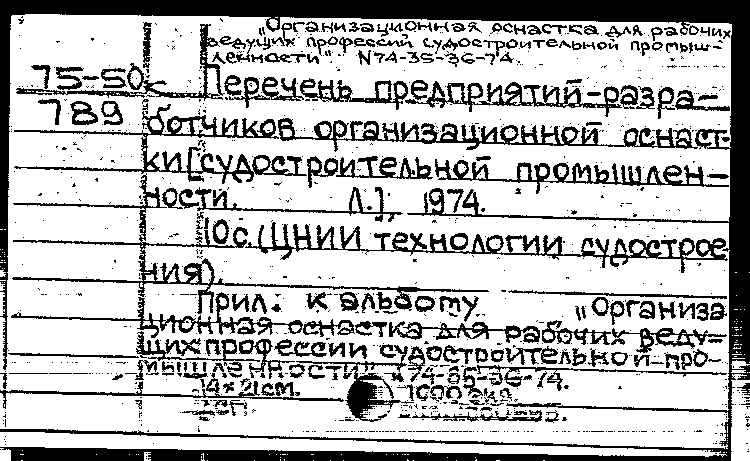 „Организационная оснастка для рабочих
ведущих профессий судостроительной промыш-
ленности" N74-35-36-74.
75-50
789
Перечень предприятий-разра-
ботчиков организационной оснаст-
ки[судостроительной промышлен-
ности. Л.], 1974.
10с. (ЦНИИ технологии судострое
ния).
Прил. к альбому „Организа
ционная оснастка для рабочих веду=
щих профессии судостроительной про-
мышленности" 74-85-36-74.
14×21см. 1000 экз.